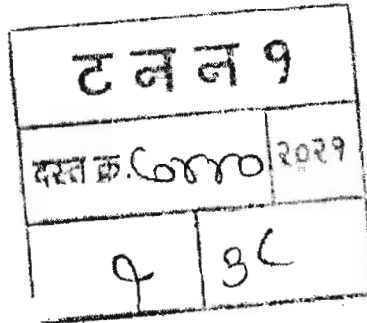 ट न न १
दस्त क्र. ८७४४० २०२१
१ ३८